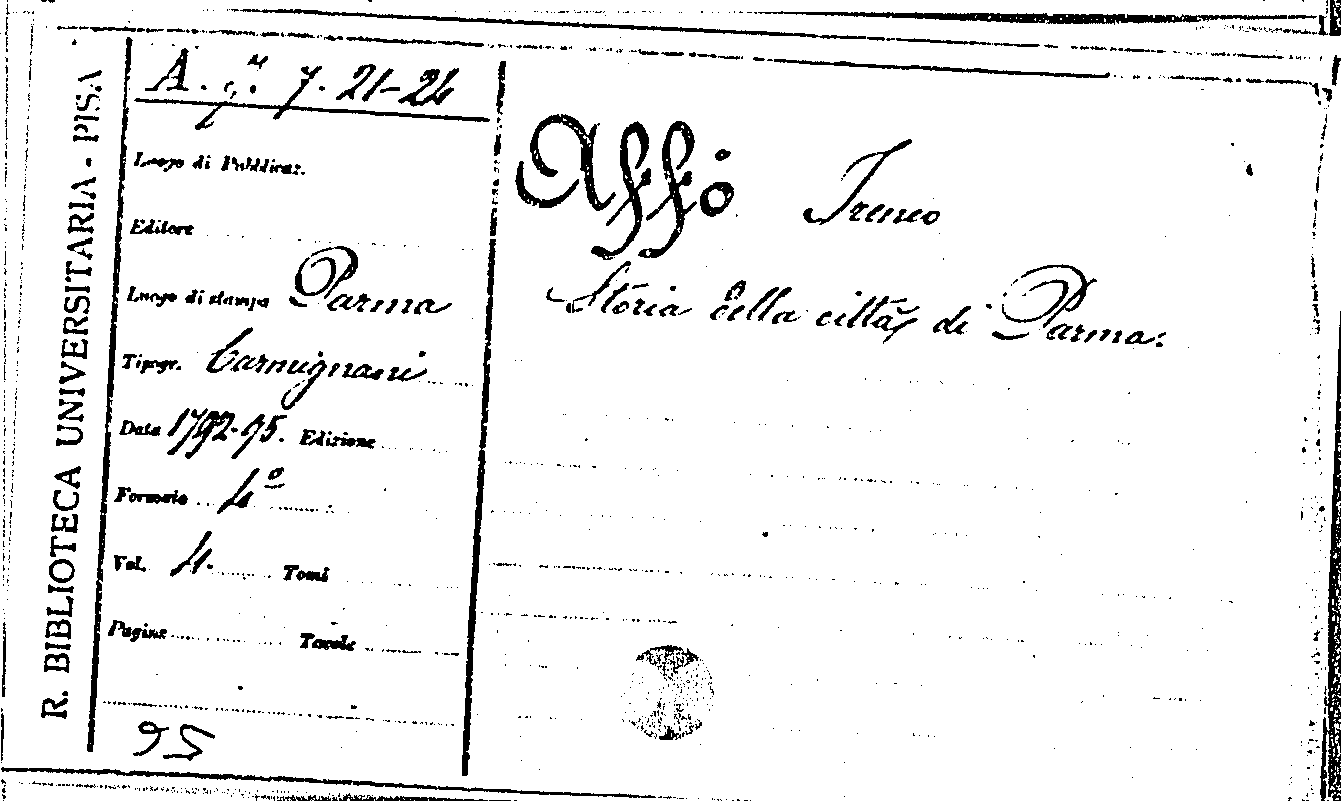 R. BIBLIOTECA UNIVERSITARIA - PISA
A. g. 7. 21-24
Luogo di Pubblicaz.
Editore
Luogo di stampa Parma
Tipogr. Carmignani
Data 1792-95. Edizione
Formato 4º
Vol. 4. Tomi
Pagine Tavole
Affò Ireneo
Storia della città di Parma.